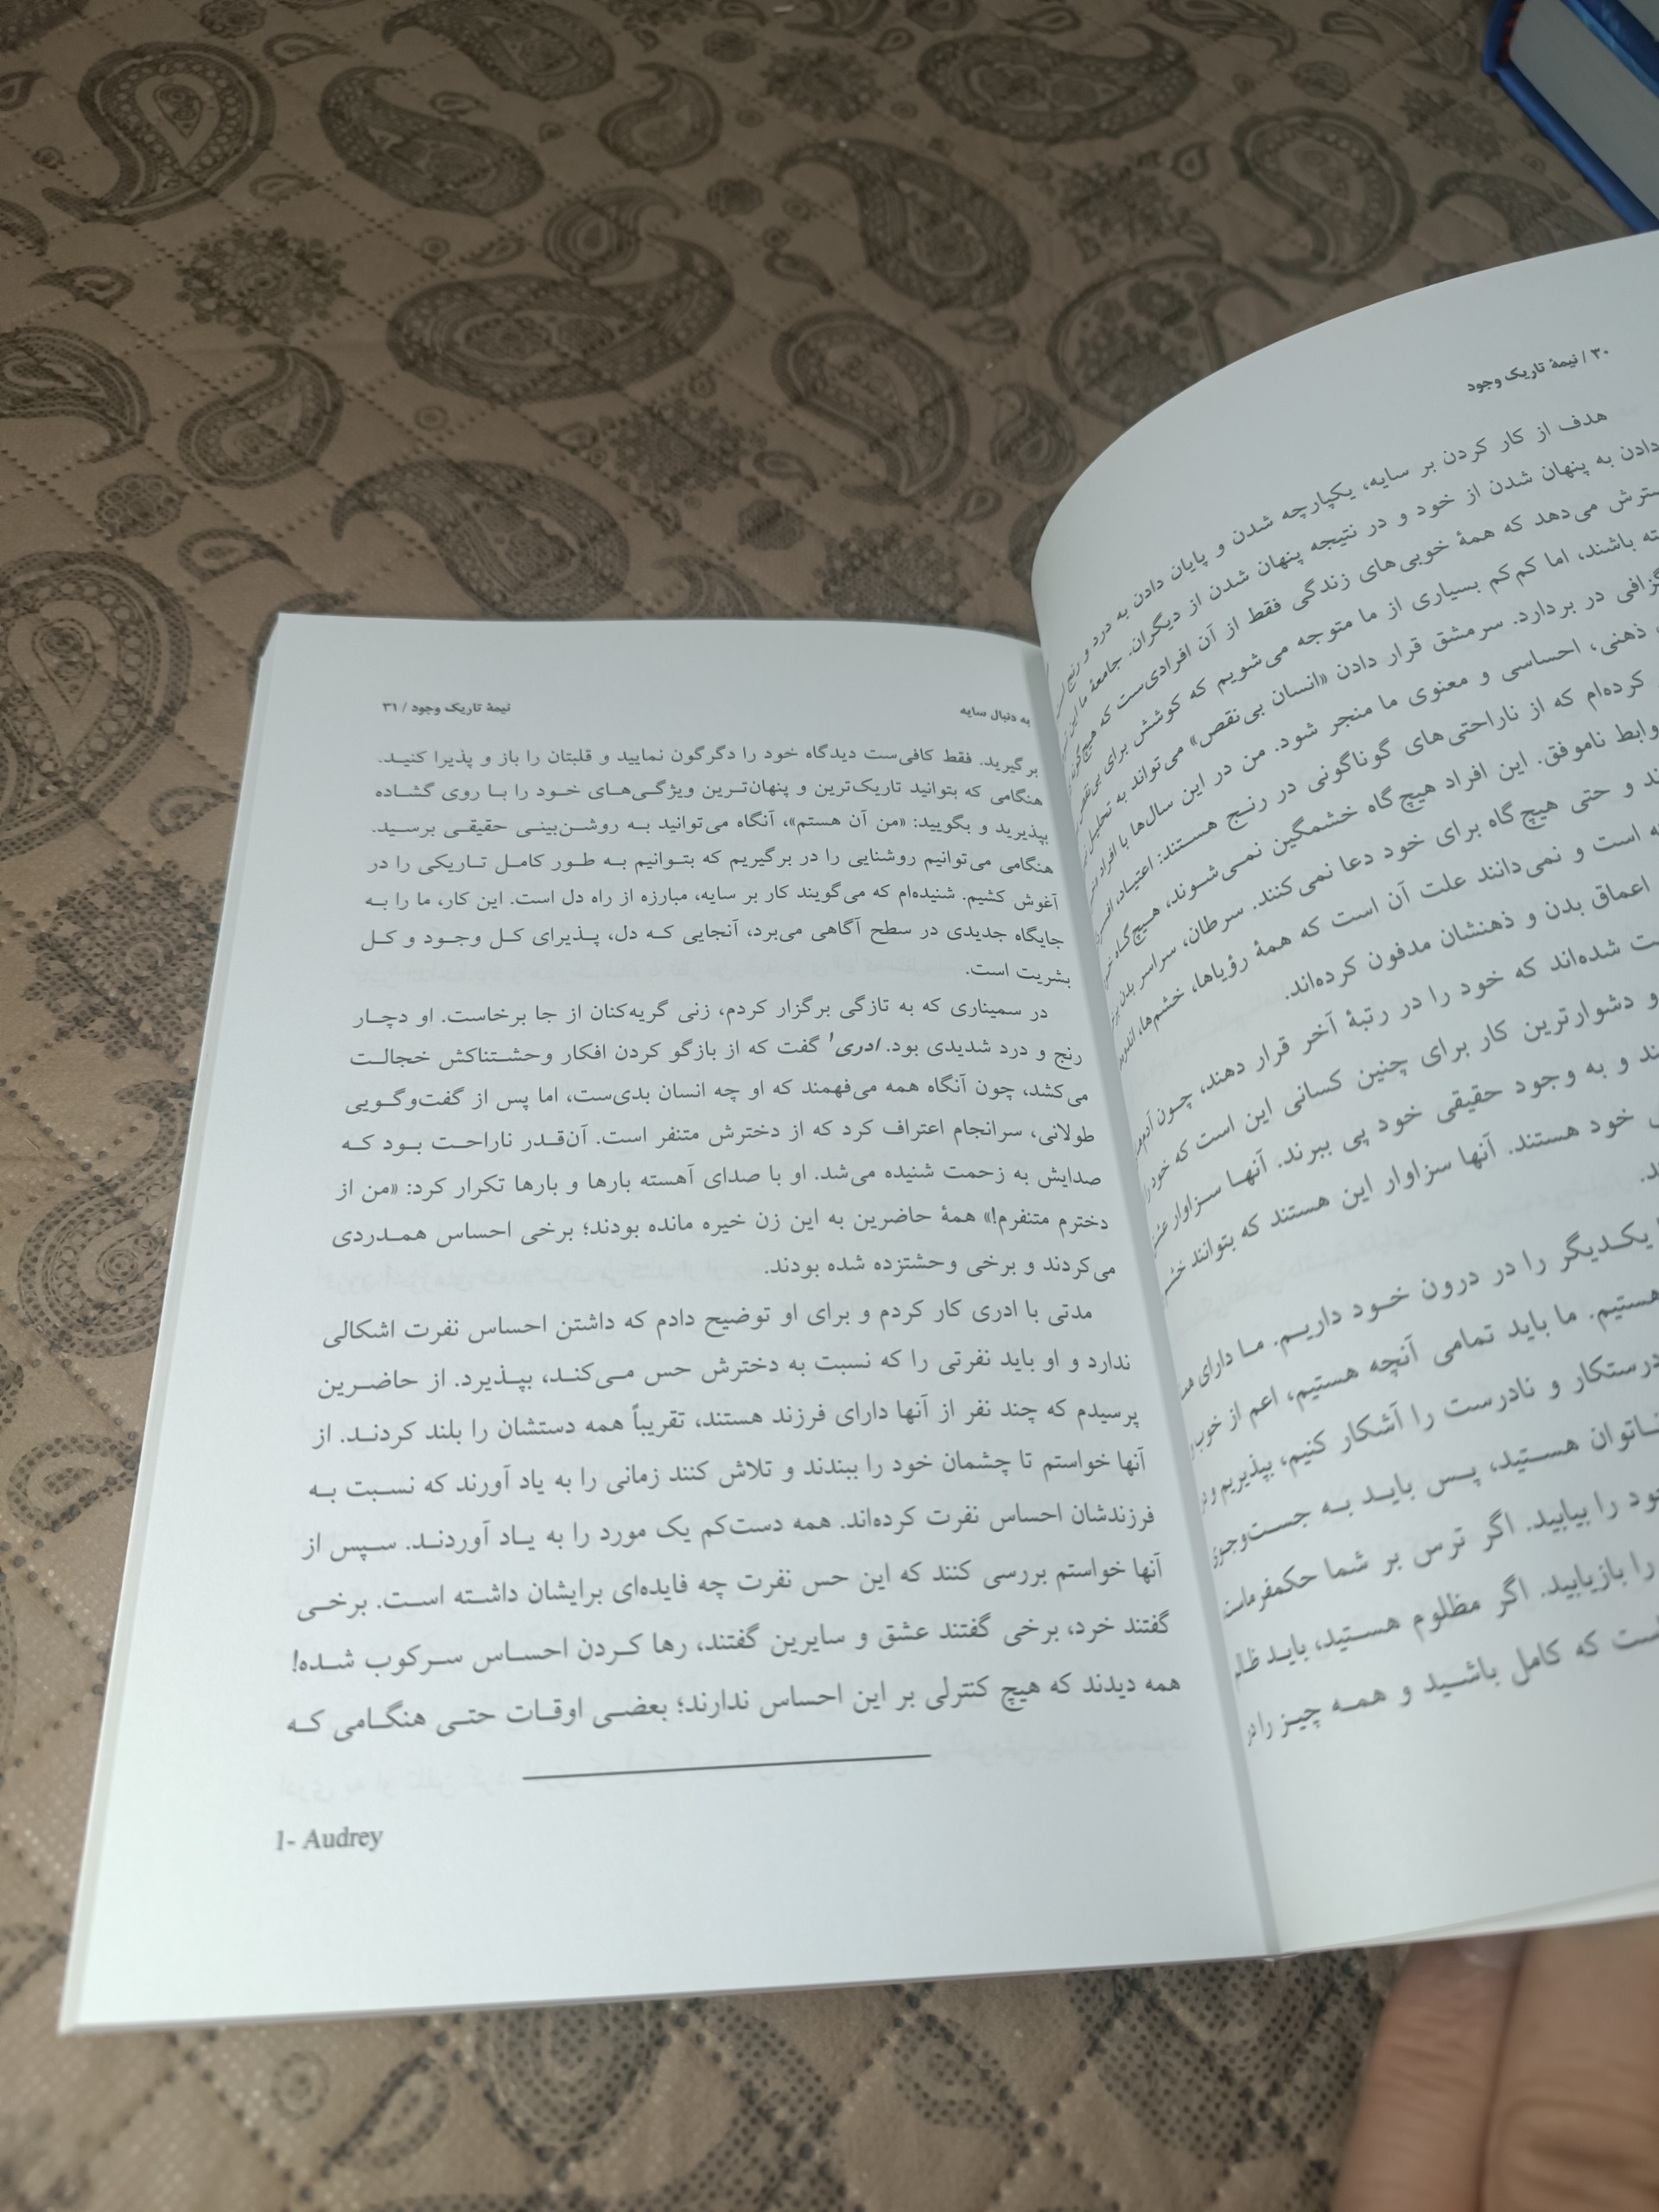 ۳۰ / نیمهٔ تاریک وجود
هدف از کار کردن بر سایه، یکپارچه شدن و پایان دادن به درد و رنج
دادن به پنهان شدن از خود و در نتیجه پنهان شدن از دیگران. جامعهٔ ما این
می‌دهد که همهٔ خوبی‌های زندگی فقط از آن افرادی‌ست که هیچ‌گونه
باشند، اما کم‌کم بسیاری از ما متوجه می‌شویم که کوشش برای بی‌نقص
در بردارد. سرمشق قرار دادن «انسان بی‌نقص» می‌تواند به تحلیل
ذهنی، احساسی و معنوی ما منجر شود. من در این سال‌ها با افراد
کرده‌ام که از ناراحتی‌های گوناگونی در رنـج هستند: اعتیـاد،
ناموفق. این افراد هیچ‌گاه خشمگین نمـی‌شـوند، هـیچ‌گـاه
و حتی هیچ‌گاه برای خود دعا نمی‌کنند. سرطان، سراسر بدن
است و نمی‌دانند علت آن است که همهٔ رؤیاها، خشم‌ها،
اعماق بدن و ذهنشان مدفون کرده‌اند.
شده‌اند که خود را در رتبهٔ آخر قرار دهند، چـون
و دشوارترین کار برای چنین کسانی این است که خود
و به وجود حقیقی خود پی ببرند. آنهـا سـزاوار
خود هستند. آنها سزاوار این هستند که بتوانند
یکـدیگر را در درون خـود داریـم. مـا دارای
هستیم. ما باید تمامی آنچه هستیم، اعم از خوب
درستکار و نادرست را آشکار کنیم، بپذیریم و
هسـتید، پـس بایـد بـه جسـت‌وجوی
را بیابید. اگر ترس بر شما حکمفرماست
را بازیابید. اگر مظلوم هسـتید، بایـد
که کامل باشـید و همـه چیـز را در
به دنبال سایه
نیمهٔ تاریک وجود / ۳۱
برگیرید. فقط کافی‌ست دیدگاه خود را دگرگون نمایید و قلبتان را باز و پذیرا کنیـد.
هنگامی که بتوانید تاریک‌ترین و پنهان‌تـرین ویژگـی‌هـای خـود را بـا روی گشـاده
بپذیرید و بگویید: «من آن هستم»، آنگاه می‌توانید بـه روشـن‌بینـی حقیقـی برسـید.
هنگامی می‌توانیم روشنایی را در برگیریم که بتـوانیم بـه طـور کامـل تـاریکی را در
آغوش کشیم. شنیده‌ام که می‌گویند کار بر سایه، مبارزه از راه دل است. این کار، ما را بـه
جایگاه جدیدی در سطح آگاهی می‌برد، آنجایی کـه دل، پـذیرای کـل وجـود و کـل
بشریت است.
در سمیناری که به تازگی برگزار کردم، زنی گریه‌کنان از جا برخاست. او دچـار
رنج و درد شدیدی بود. ادری۱ گفت که از بازگو کردن افکار وحشـتناکش خجالـت
می‌کشد، چون آنگاه همه می‌فهمند که او چه انسان بدی‌ست، اما پس از گفت‌وگـویی
طولانی، سرانجام اعتراف کرد که از دخترش متنفر است. آن‌قـدر ناراحـت بـود کـه
صدایش به زحمت شنیده می‌شد. او با صدای آهسته بارها و بارها تکرار کرد: «من از
دخترم متنفرم!» همهٔ حاضرین به این زن خیره مانده بودند؛ برخی احساس همـدردی
می‌کردند و برخی وحشتزده شده بودند.
مدتی با ادری کار کردم و برای او توضیح دادم که داشتن احساس نفرت اشکالی
ندارد و او باید نفرتی را که نسبت به دخترش حس مـی‌کنـد، بپـذیرد. از حاضـرین
پرسیدم که چند نفر از آنها دارای فرزند هستند، تقریباً همه دستشان را بلند کردنـد. از
آنها خواستم تا چشمان خود را ببندند و تلاش کنند زمانی را به یاد آورند که نسـبت بـه
فرزندشان احساس نفرت کرده‌اند. همه دست‌کم یک مورد را به یـاد آوردنـد. سـپس از
آنها خواستم بررسی کنند که این حس نفرت چه فایده‌ای برایشان داشـته اسـت. برخـی
گفتند خرد، برخی گفتند عشق و سایرین گفتند، رها کـردن احسـاس سـرکوب شـده!
همه دیدند که هیچ کنترلی بر این احساس ندارند؛ بعضـی اوقـات حتـی هنگـامی کـه
1- Audrey